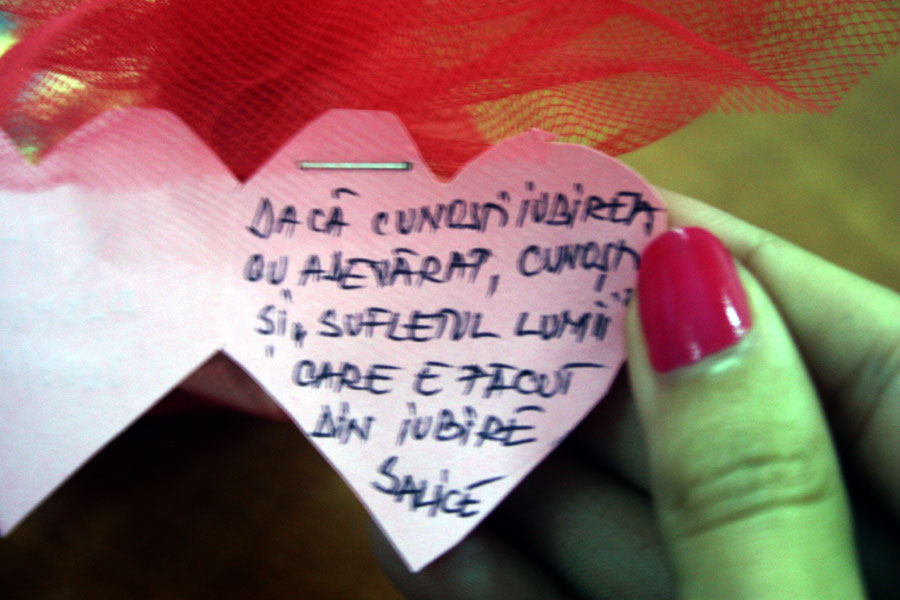 DACĂ CUNOȘTI IUBIREA
CU ADEVĂRAT, CUNOȘTI
ȘI „SUFLETUL LUMII"
CARE E FĂCUT
DIN IUBIRE
SALICE